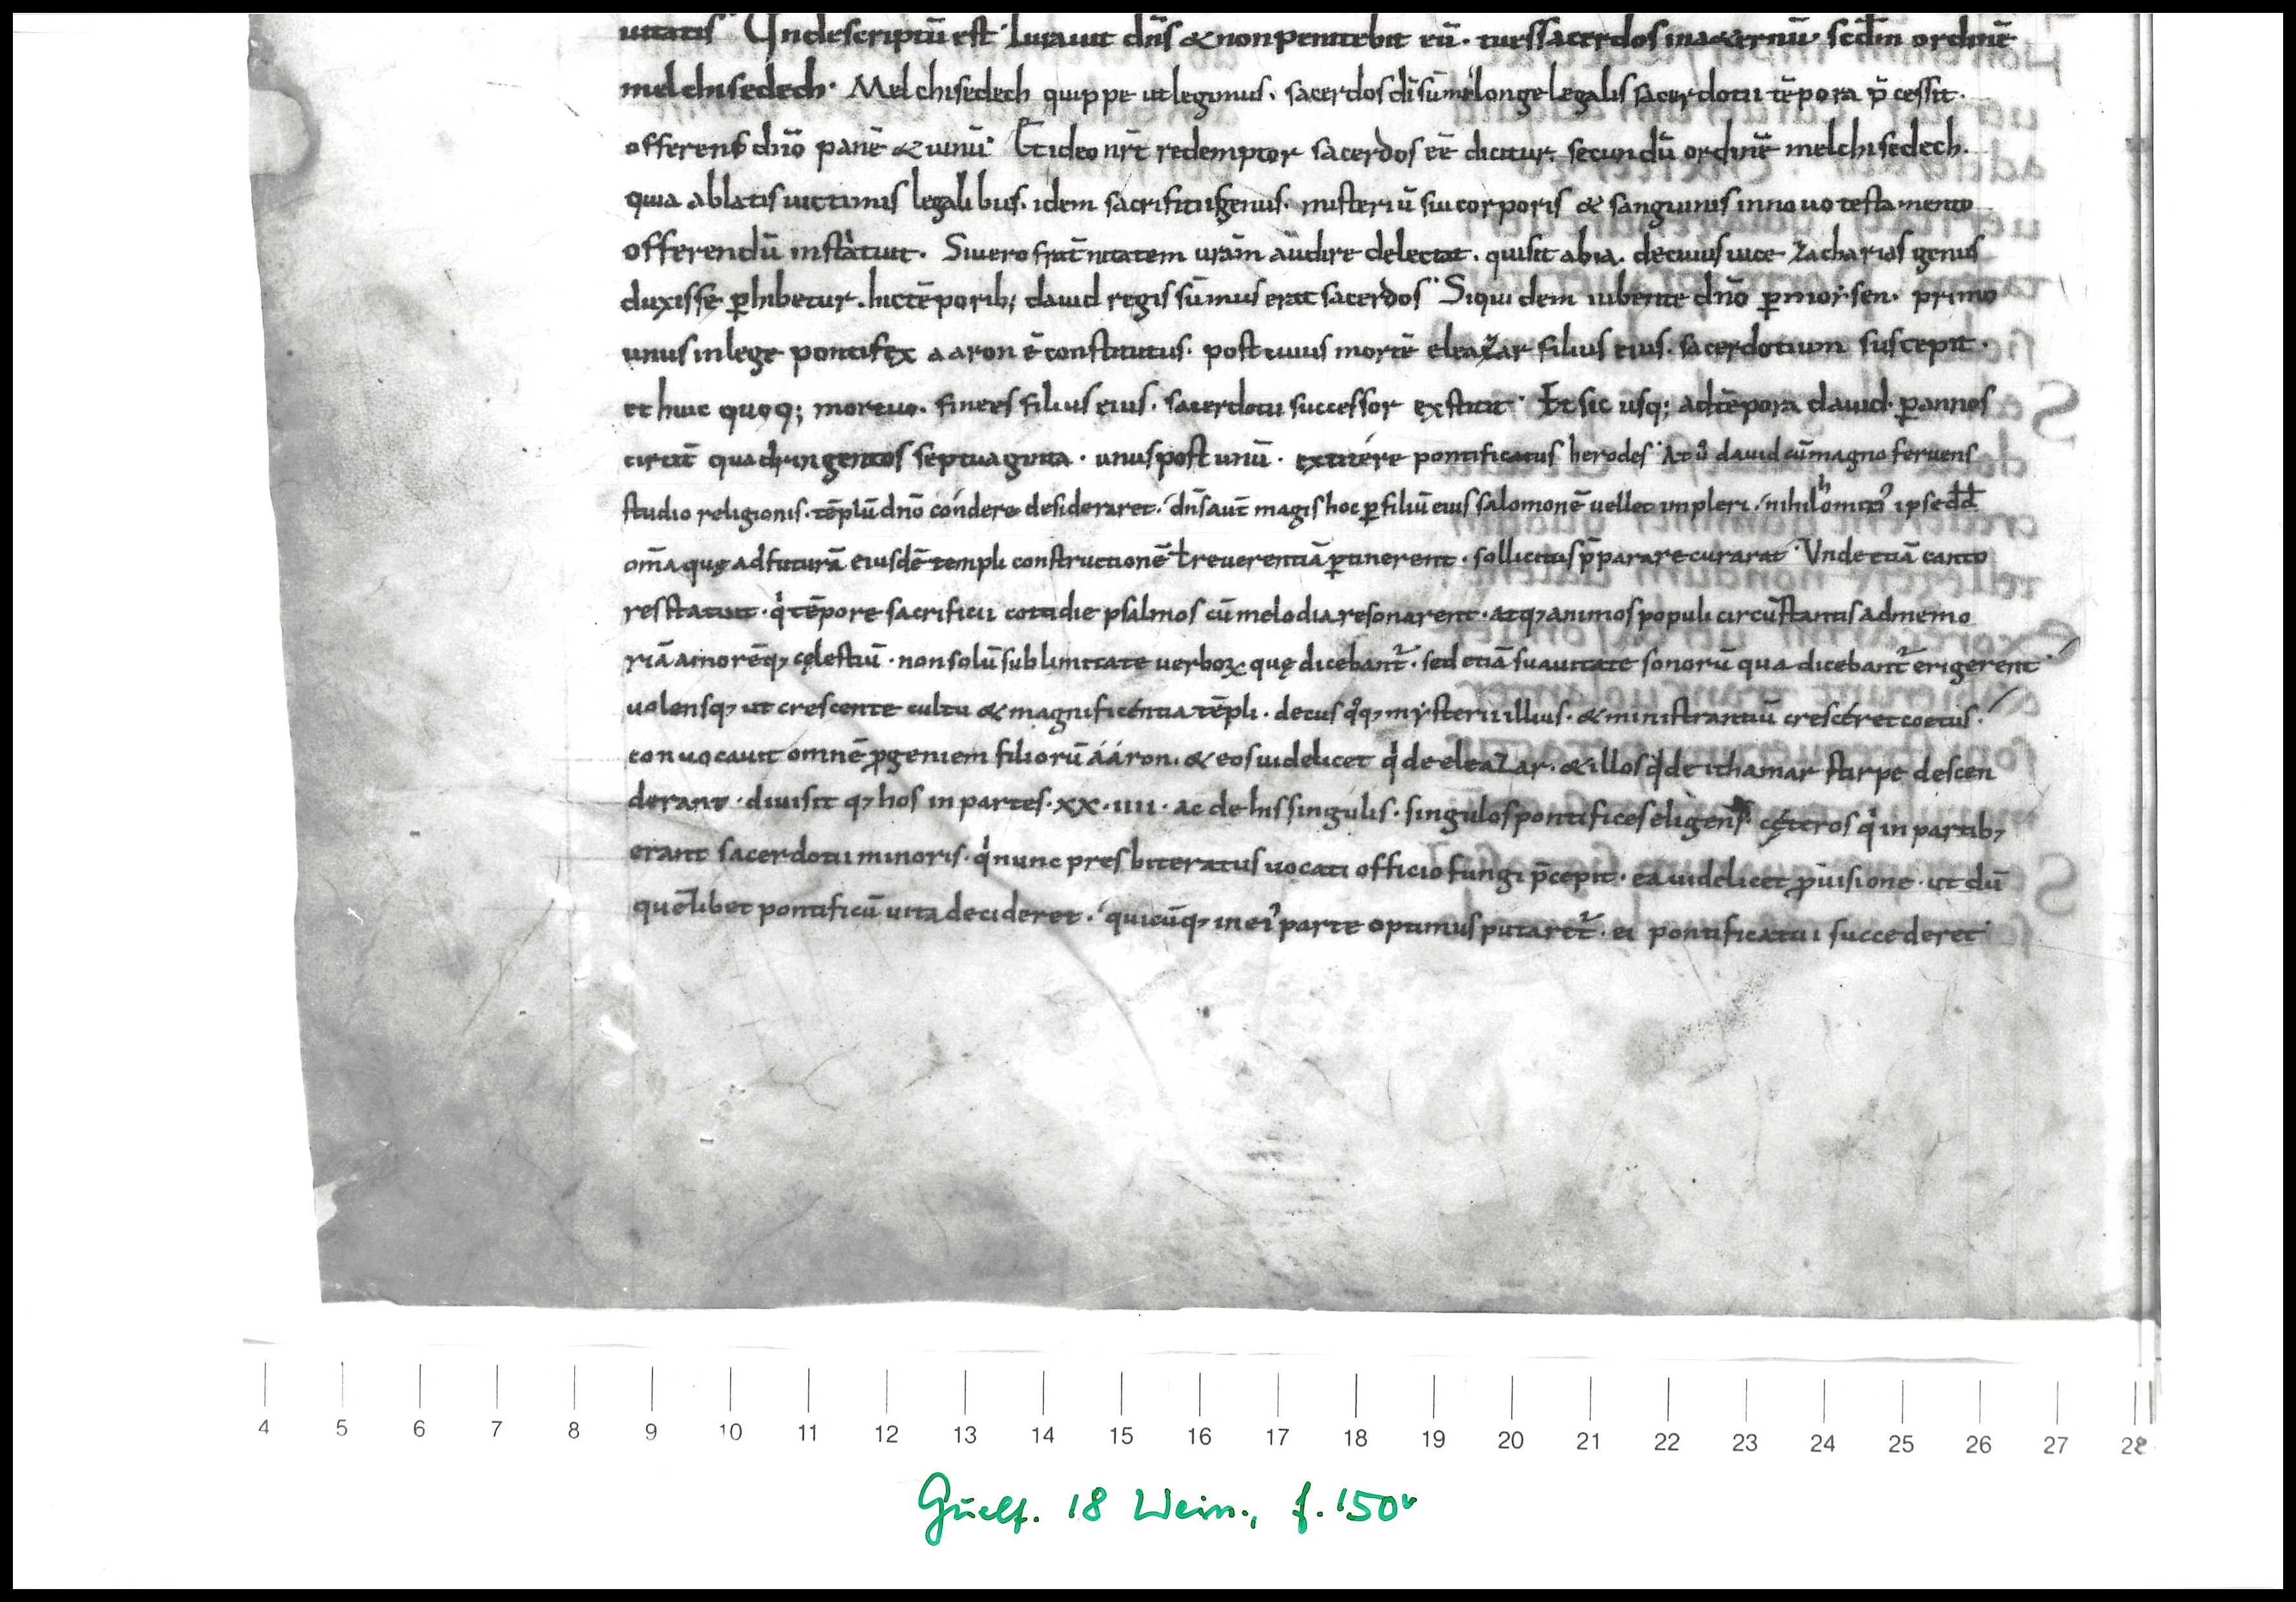 uitatis· Undescriptū est· Iurauit dn̄s & non penitebit eū· tuessacerdos ina&ernū· scdm̄ ordinē
melchisedech· Melchisedech quippe utlegimus· sacerdos dī sūmi longe legalis sacerdotii tēpora p̄cessit·
offerens dn̄o panē & uinū· Et ideo nr̄t redemptor sacerdos eē dicitur· secundū ordinē melchisedech·
quia ablatis uictimis legalibus· idem sacrificii genus· misteriū sui corporis & sanguinis in nouo testamento
offerendū instàtuit· Siuero frat̄nitatem uram̄ audire delectat· quisit abia· decuius uice zacharias genus
duxisse ꝑhibetur· hic tēporib; dauid regis sūmus erat sacerdos· Siquidem iubente dn̄o ꝑ moẏsen· primo
unus in lege pontifex aaron ē constitutus· post cuius mortē eleazar filius eius· sacerdotium suscepit·
et huic quoq; mortuo· finees filius eius· sacerdotii successor exstitit· Et sic usq; ad tēpora dauid· ꝑ annos
circit̄ quadringentos septuaginta· unus post unū· extitére pontificatus herodes· At ů dauid cū magno feruens
studio religionis· tēplū dn̄o cóndere desideraret· dn̄s aut̄ magis hoc ꝑ filiū eius salomonē uellet impleri· nihilhomin᾽ ipse dd̄
om̄a quę ad futurā eiusdē templi constructionē ł reuerentiā ꝑtinerent· sollicitus p̄parare curarat· Unde etiā canto
res statuit· q̇ tēpore sacrificii cottidie psalmos cū melodia resonarent· atq; animos populi circūstantis ad memo
riā amorēq; cęlestiū· non solū sublimitate uerboꝝ quę dicebant᷑· sed etiā suauitate sonorū qua dicebant᷑ erigerent·
uolensq; ut crescente cultu & magnificéntia tēpli· decus q̊q; mẏsterii illius· & ministrantiū cresceret coetus·
conuocauit omnē ꝓgeniem filiorū ááron· & eos uidelicet q̇ de eleazar· & illos q̇ de ithamar stirpe descen
derant· diuisit q; hos in partes· xx· iiii· ac de his singulis· singulos pontifices eligens· cęteros q̇ in partib;
erant sacerdotii minoris· q̇ nunc presbiteratus uocati officio fungi p̄cepit· ea uidelicet ꝓuisione· ut dū
quēlibet pontificū uita decideret· quicūq; in ei᾽ parte optimus putaret᷑· ei pontificatui succederet
4 5 6 7 8 9 10 11 12 13 14 15 16 17 18 19 20 21 22 23 24 25 26 27 28
Guelf. 18 Wein., f. 150v